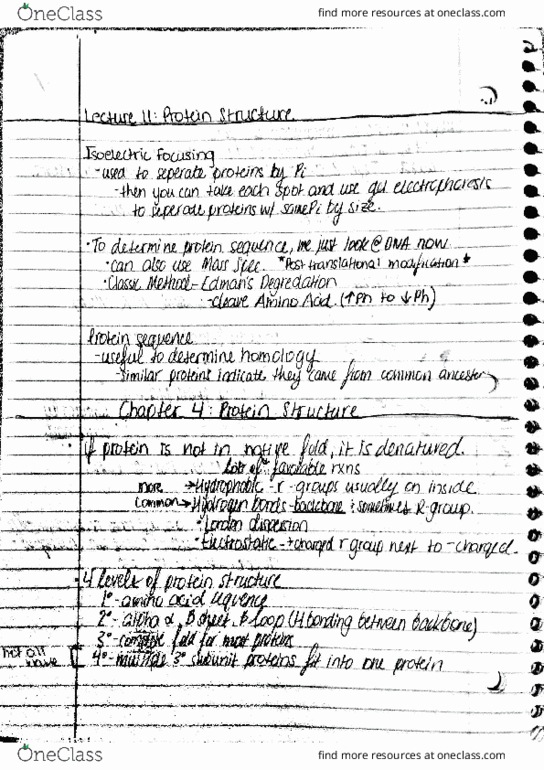 OneClass
find more resources at oneclass.com
Lecture 11: Protein Structure
Isoelectric Focusing
-used to seperate proteins by Pi
-then you can take each spot and use gel electrophoresis
to seperate proteins w/ same Pi by size.
·To determine protein sequence, we just look @ DNA now
·can also use Mass Spec. *Post translational modification*
·Classic Method-Edman's Degredation
-cleave Amino Acid (↑Ph to ↓Ph)
Protein sequence
-useful to determine homology
-similar proteins indicate they came from common ancestor
Chapter 4: Protein Structure
·if protein is not in native fold, it is denatured.
Lots of favorable rxns
more →Hydrophobic-r-groups usually on inside
common→Hydrogen bonds-backbone & sometimes R-group.
·London dispersion
·Electrostatic-→+charged r group next to -charged.
·4 Levels of protein structure
1°-amino acid sequence
2°-alpha α, B sheet, B loop (H bonding between backbone)
3°-complete fold for most proteins
not all have [4°-multiple 3° subunit proteins fit into one protein
OneClass
find more resources at oneclass.com